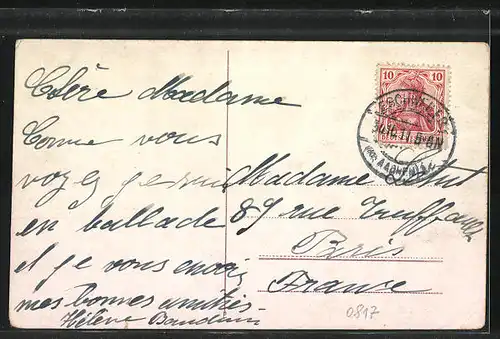 Chère Madame
Comme vous
voyez je suis
en ballade
et je vous envoie
mes bonnes amitiés
Hélène Baudoin
10 10
ESCHWEILER
5-6N
(BZ. AACHEN)
Madame
89 rue Truffaut
Paris
France
0817